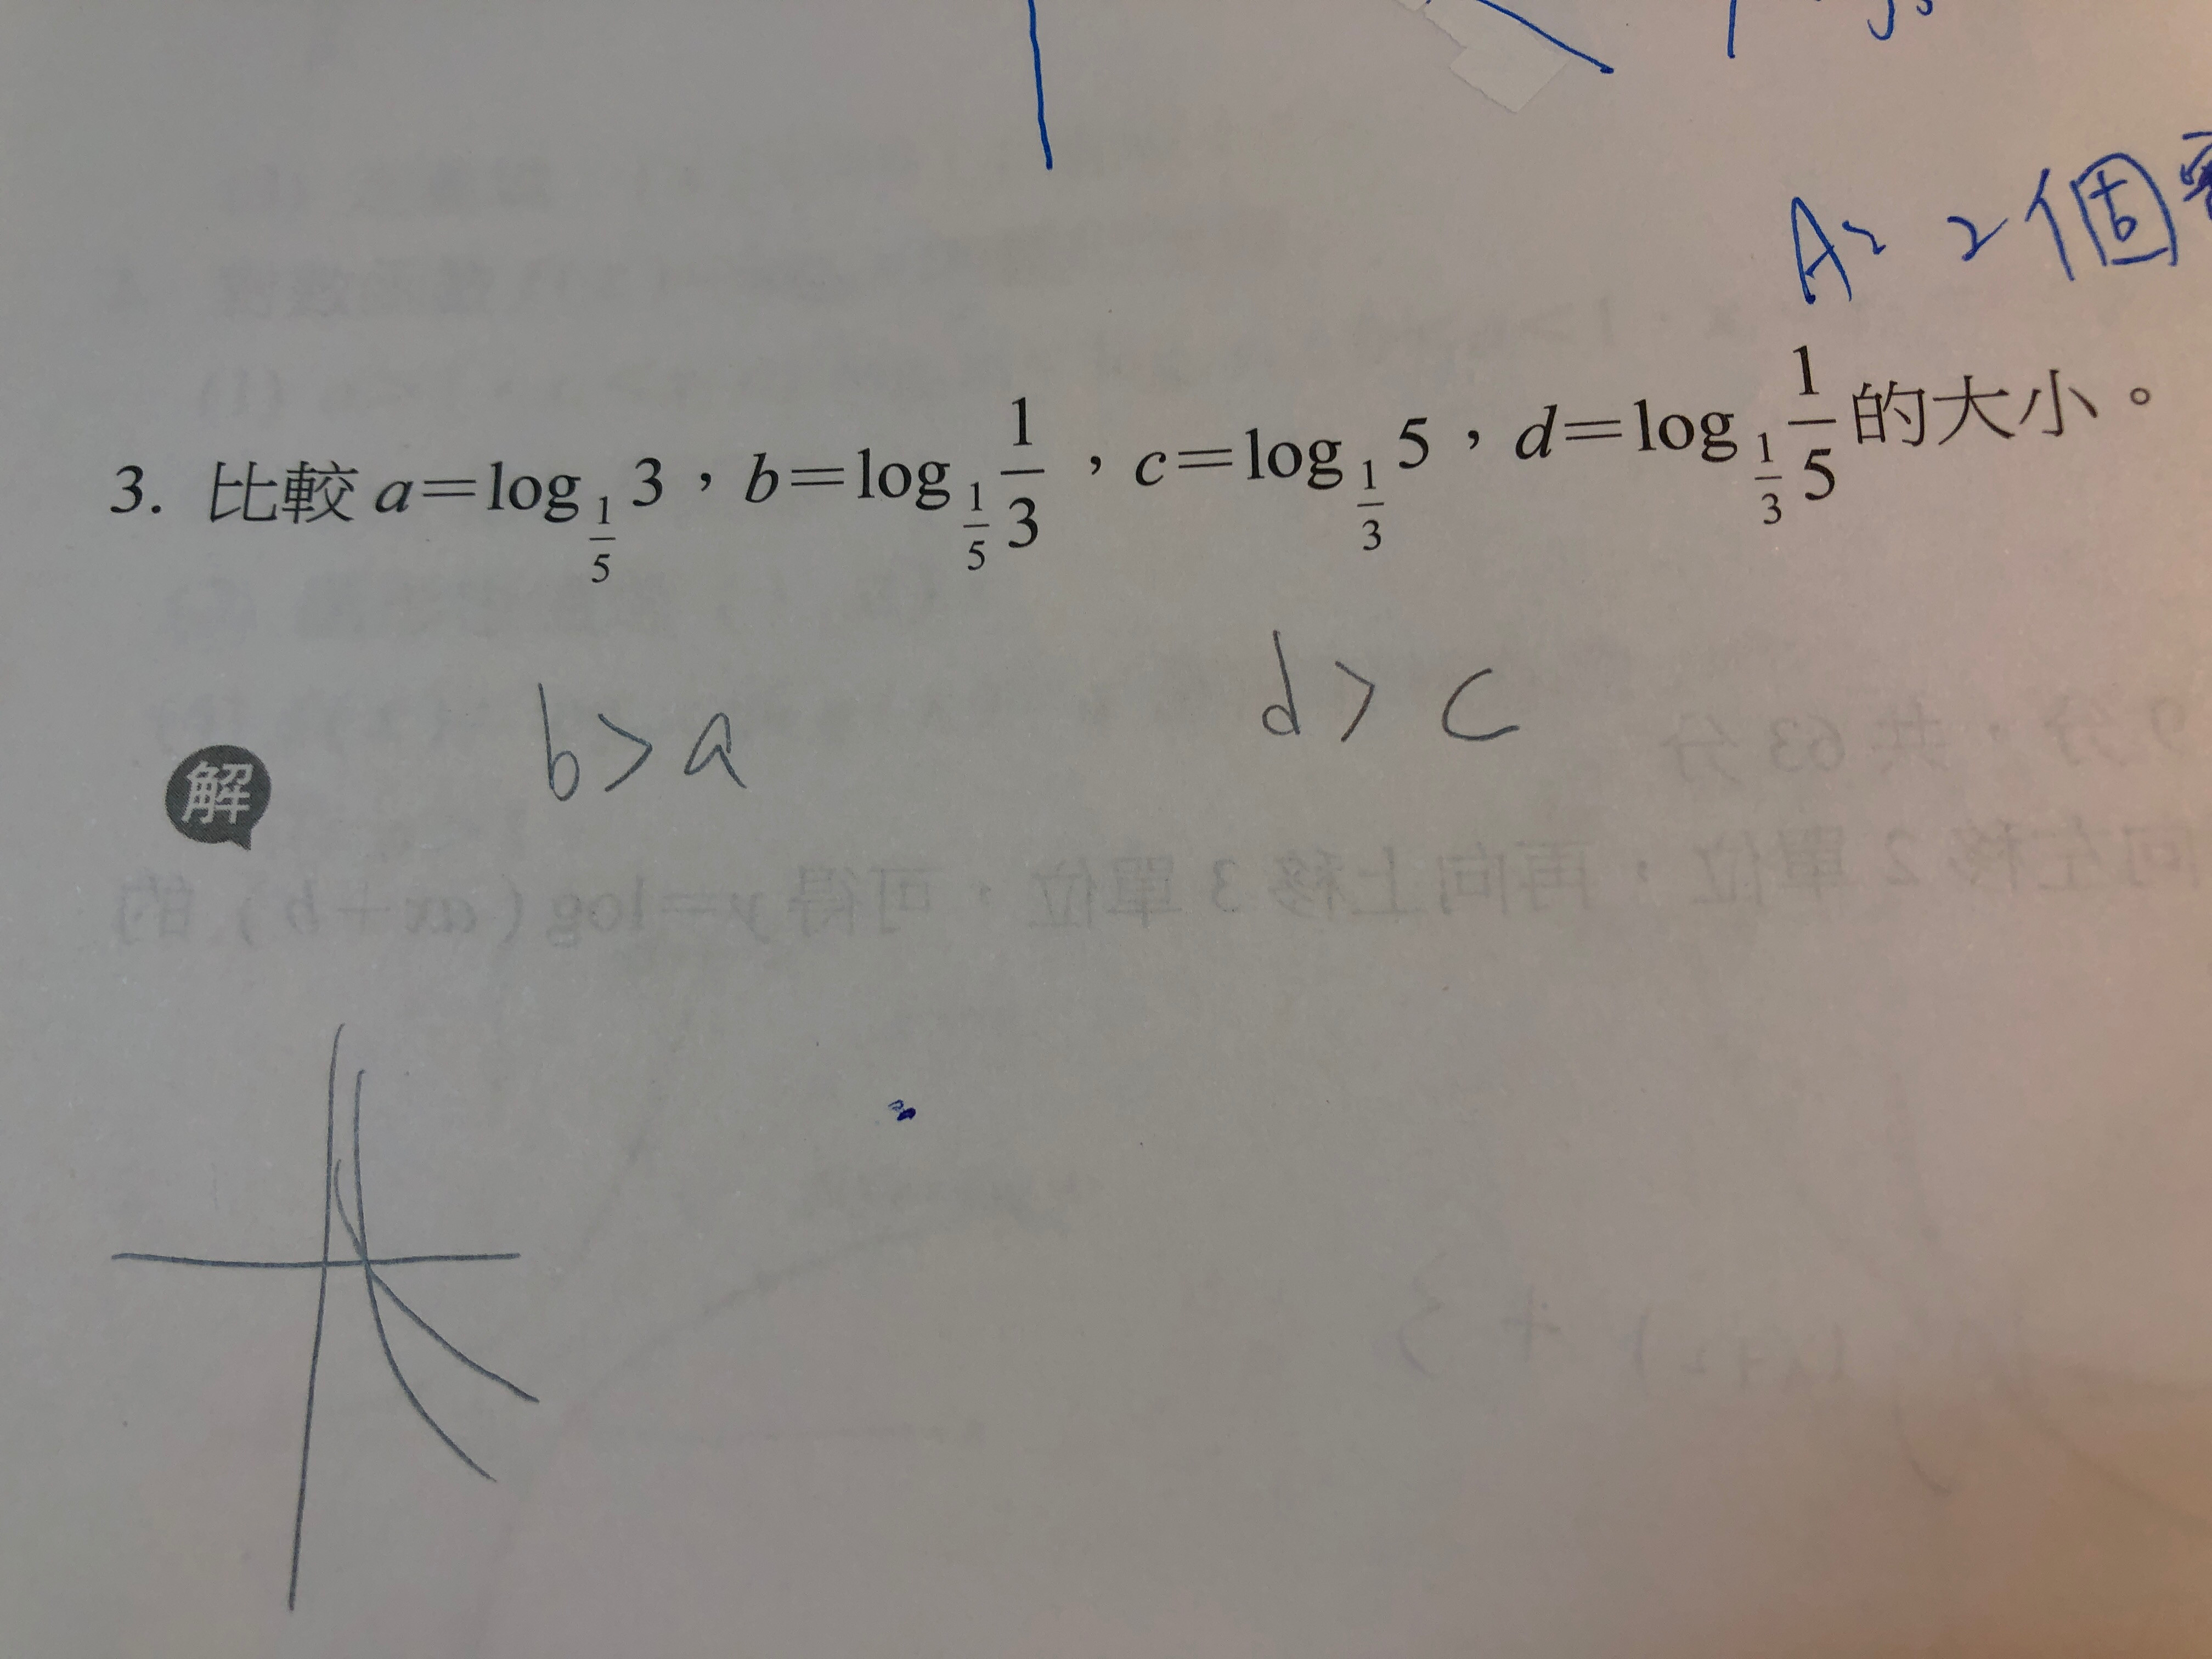 A= 2個
3. 比較 a=log_{1/5} 3，b=log_{1/5} 1/3，c=log_{1/3} 5，d=log_{1/3} 1/5 的大小。
b>a d>c
解